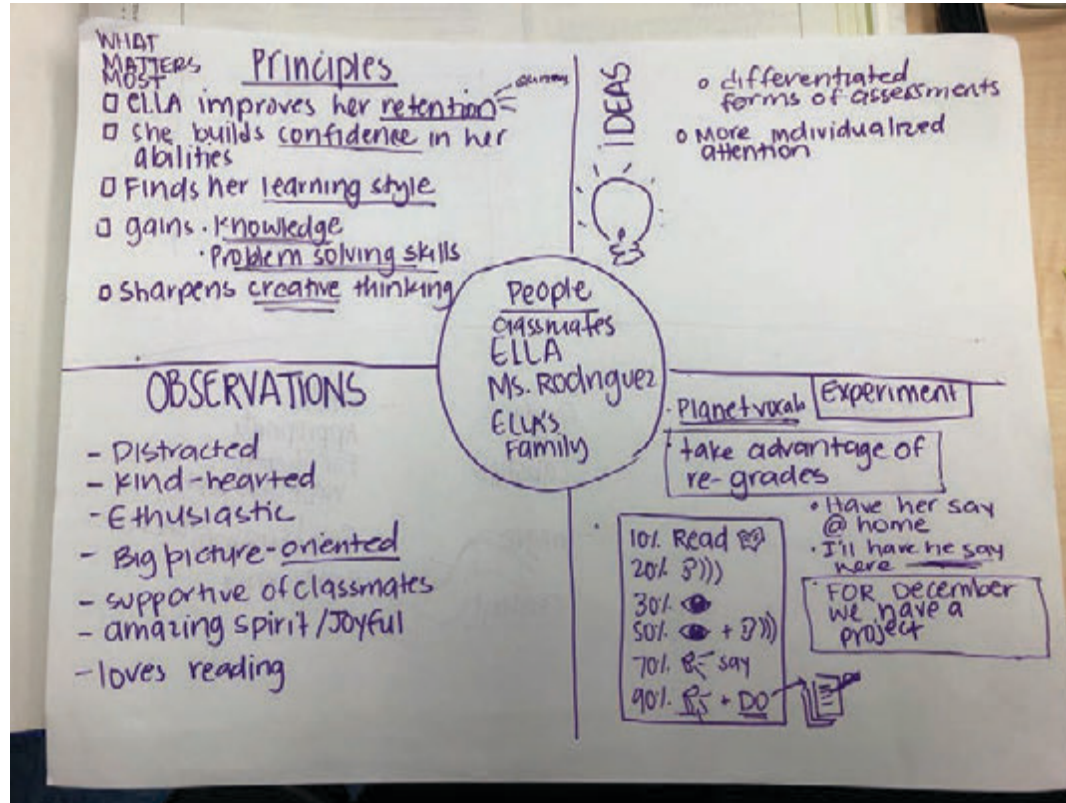 WHAT
MATTERS
MOST
Principles
ELLA improves her retention
she builds confidence in her
abilities
Finds her learning style
gains · Knowledge
· Problem solving skills
sharpens creative thinking
IDEAS
differentiated
forms of assessments
More individualized
attention
People
classmates
ELLA
Ms. Rodriguez
Ella's
Family
OBSERVATIONS
- Distracted
- Kind-hearted
- Ethusiastic
- Big picture-oriented
- supportive of classmates
- amazing spirit/Joyful
- loves reading
Experiment
· Planet vocab
take advantage of
re-grades
· Have her say
@ home
· I'll have he say
here
· FOR December
we have a
project
10% Read
20%
30%
50% +
70% say
90% + DO